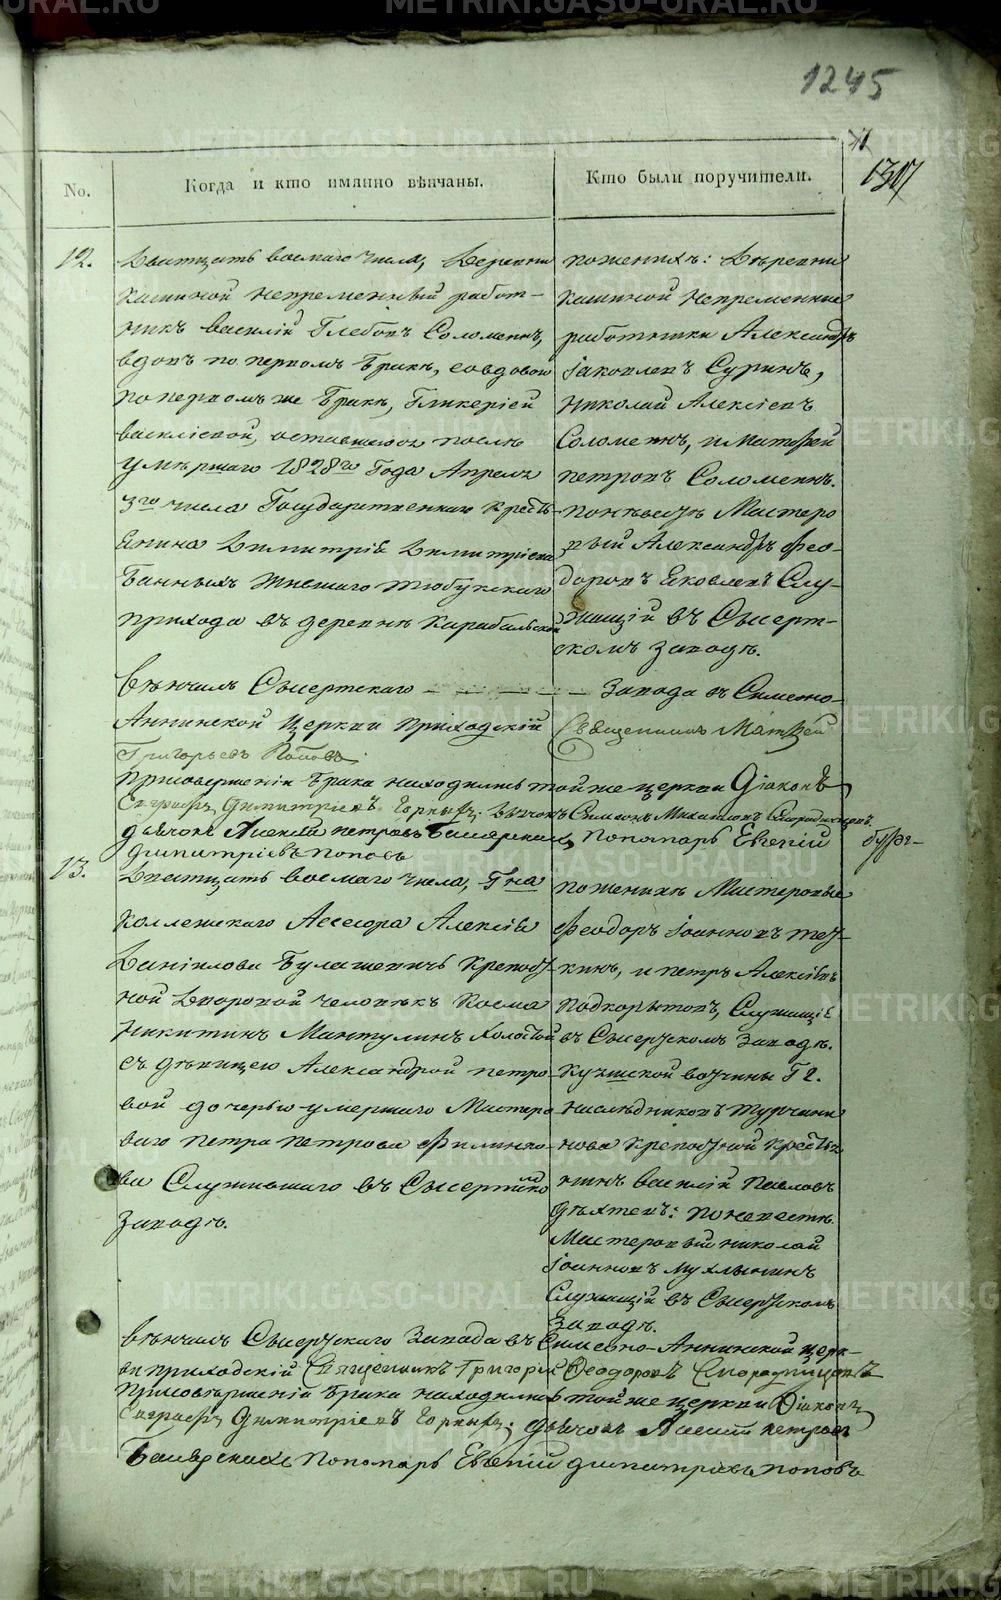 1245
1307
No.
Когда и кто имянно вѣнчаны.
Кто были поручители.
12.
Дватцать восмаго числа, Деревни
Кашиной непременный работ-
никъ Василій Глебовъ Соломеинъ,
вдовъ по первомъ браке, со вдовою
по первомъ же браке, Гликеріей
Василіевой, оставшеюся после
умершаго 1828го года Апреля
3го числа Государственнаго кресть-
янина Димитріа Димитріева
Банныхъ жившаго Тюбукскаго
прихода въ деревне Карабальской
по женихѣ: Деревни
Кашиной Непременные
работники Александръ
Іаковлевъ Суринъ,
Николай Алексіевъ
Соломеинъ, и Матфей
Петровъ Соломеинъ.
по невесте Мастеро
вый Александръ Фео-
доровъ Яковлевъ Слу-
жащій въ Сысерт-
скомъ заводе.
Венчалъ Сысертскаго Завода въ Симеоно-
Аннинской Церкви приходскій Священникъ Матфей
Григорьевъ Поповъ
При совершеніи брака находились той же церкви Діаконъ
Евграфъ Димитріевъ Горныхъ. Дьячокъ Симеонъ Михаиловъ Смородинцовъ.
дьячокъ Алексій Петровъ Пономарь Евгеній
Димитріевъ Поповъ
13.
Дватцать восмаго числа, Г-на
Коллежскаго Ассесора Алексіа
Даніилова Булашевичь крепост-
ной дворовой человекъ Косма
Никитинъ Мантулинъ холостой
съ девицею Александрой Петро-
вой дочерью умершаго Мастеро
ваго Петра Петрова Филинко-
ва Служившаго въ Сысертско
заводе.
по женихе Мастеровые
Феодоръ Іоанновъ Тет-
кинъ, и Петръ Алексіевъ
Подкорытовъ, Служащіе
въ Сысертскомъ заводе.
вотчины Гг.
наследниковъ Турчани
нова крепостной кресть
нинъ Василій Павловъ
Дехтевъ: по невесте
Мастеровый Николай
Іоанновъ Мухлынинъ
Служащій въ Сысертскомъ
Заводе.
Венчалъ Сысертскаго Завода въ Симеоно-Аннинской церк-
ви приходскій Священникъ Григорій Феодоровъ Смородинцовъ
При совершеніи брака находились той же церкви Діаконъ
Евграфъ Димитріевъ Горныхъ; дьячокъ Алексій Петровъ
Пономарь Евгеній Димитріевъ Поповъ
METRIKI.GASO-URAL.RU